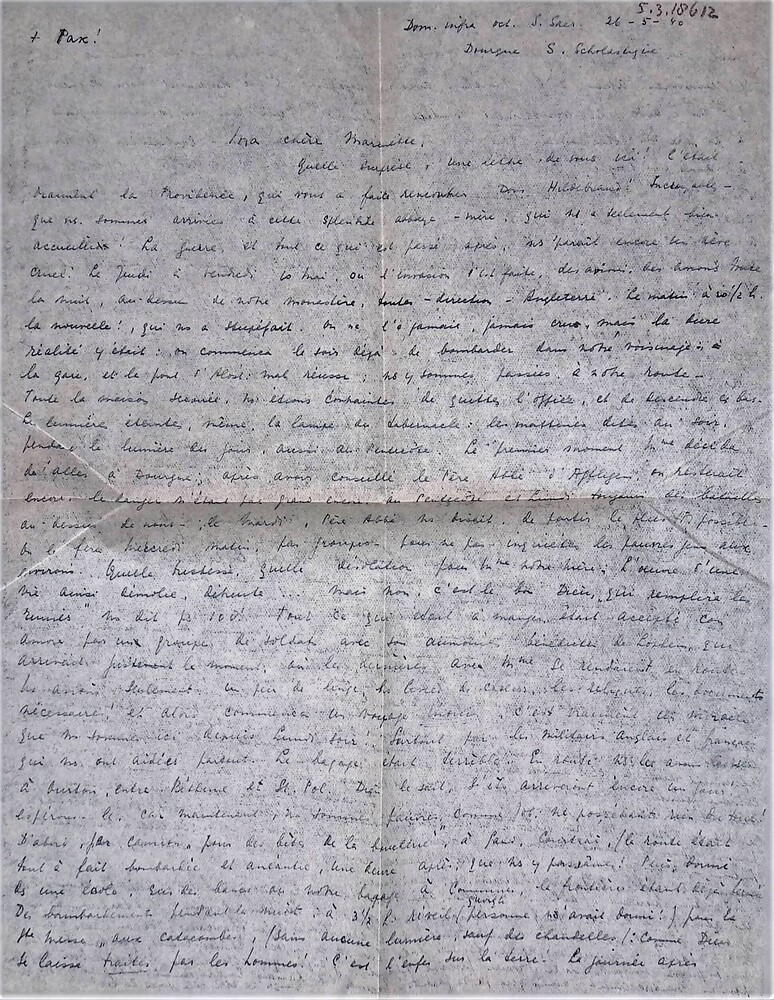 5.3.18612
+ Pax! Dom. infra oct. S. Sacr. 26-5-40
Dourgne S. Scholastique
chère
Quelle surprise, une lettre de vous ici! C'était
vraiment la Providence, qui vous a faite rencontrer Dom Hildebrand!
que ns. sommes arrivées à cette splendide abbaye-mère, qui ns a tellement bien
accueillies! La guerre, et tout ce qui est passé après, ns paraît encore un rêve
cruel! Le jeudi à vendredi 10 mai, où l'invasion s'est faite, des avions, des avions toute
la nuit, au-dessus de notre monastère, toutes - direction - Angleterre. Le matin à 10 1/2 h.
la nouvelle!, qui ns a stupéfait. On ne l'a jamais, jamais cru, mais la dure
réalité y était: on commença le soir déjà de bombarder dans notre voisinage: à
la gare, et le pont d'Alost: mal réussi; ns y sommes passées à notre route.
Toute la maison, ns étions de quitter l'office, et de descendre en bas.
La lumière éteinte, même, la lampe du tabernacle: les matines dites au soir,
pendant la lumière du jour, aussi au Pentecôte. Le premier moment Mme décida
d'aller à Dourgne, après avoir conseillé le Père Abbé d'Afflighem, on resterait
encore: le danger n'était pas grand encore, au Pentecôte et Lundi toujours des
au-dessus de nous; le Mardi, Père Abbé ns disait de partir le plus possible.
On le fera Mercredi matin, par groupes pour ne pas inquiéter les pauvres gens aux
environs. Quelle tristesse, quelle désolation pour Mme notre mère! L'oeuvre d'une
vie ainsi démolie, détruite... mais non, c'est le bon Dieu, qui remplira les
ruines" ns dit Tout ce que était à manger, était accepté con
amore par une groupe de soldats avec son aumônier bénédictin de London, qui
arrivait justement le moment, où les dernières avec Mme se rendaient en route.
Ns avions seulement un peu de linge, les reliques, les documents
nécessaires! et alors commença un voyage, c'est vraiment un miracle
que ns sommes ici depuis Lundi soir! Surtout par les militaires anglais et français
qui ns ont aidées partout. Le bagage était terrible! En route ns les avons
à entre Béthune et St. Pol. Dieu le sait, s'ils arriveront encore un jour!
espérons le, car maintenant, ns sommes pauvres, comme Job, ne possédant rien du tout!
D'abord, par camion, pour des bêtes, à Gand, Courtrai, (le route était
tout à fait bombardée et anéantie, une heure après, que ns y passâmes! Puis, dormi
ds une école, sur des bancs ou notre bagage à Commines: la frontière étant déjà fermée
Des bombardements pendant la nuit: à 3 1/2 h. réveil (personne n'avait dormi!) pour la
Ste messe "aux catacombes, (sans aucune lumière, sauf des chandelles)! Comme Dieu
se laisse traiter par les hommes! C'est l'enfer sur la terre. La journée après